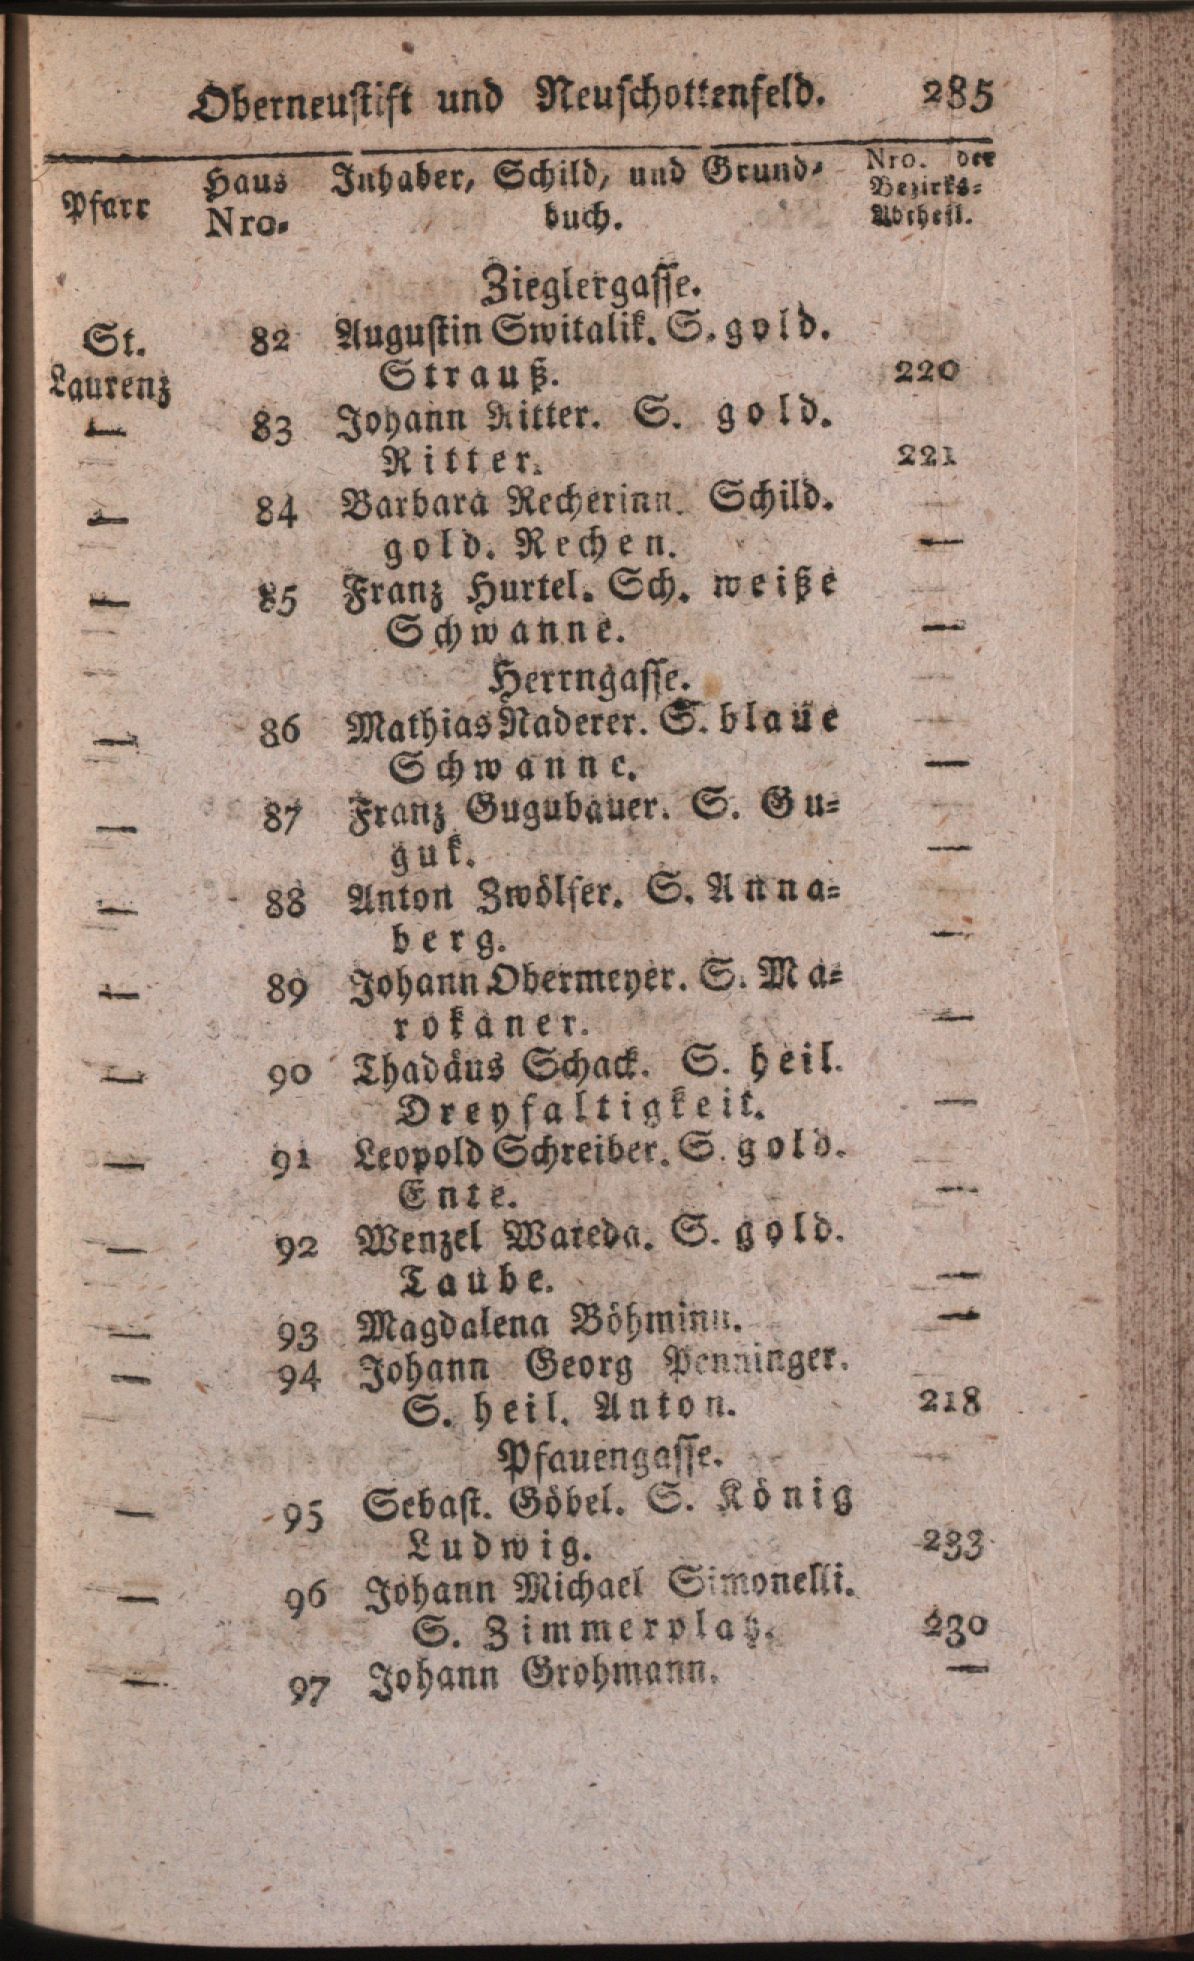 Oberneustift und Neuschottenfeld. 285
Pfarr Haus Nro. Inhaber, Schild, und Grund=
buch. Nro. der Bezirks= Abtheil.
Zieglergasse.
St. 82 Augustin Switalik. S. gold.
Laurenz Strauß. 220
— 83 Johann Ritter. S. gold.
Ritter. 221
— 84 Barbara Recherinn. Schild.
gold. Rechen. —
— 85 Franz Hurtel. Sch. weiße
Schwanne. —
Herrngasse.
— 86 Mathias Naderer. S. blaue
Schwanne. —
— 87 Franz Gugubauer. S. Gu=
guk. —
— 88 Anton Zwölfer. S. Anna=
berg. —
— 89 Johann Obermeyer. S. Ma=
rokaner. —
— 90 Thadäus Schack. S. heil.
Dreyfaltigkeit. —
— 91 Leopold Schreiber. S. gold.
Ente. —
— 92 Wenzel Wareda. S. gold.
Taube. —
— 93 Magdalena Böhminn. —
— 94 Johann Georg Penninger.
S. heil. Anton. 218
Pfauengasse.
— 95 Sebast. Göbel. S. König
Ludwig. 233
— 96 Johann Michael Simonelli.
S. Zimmerplatz. 230
— 97 Johann Grohmann. —